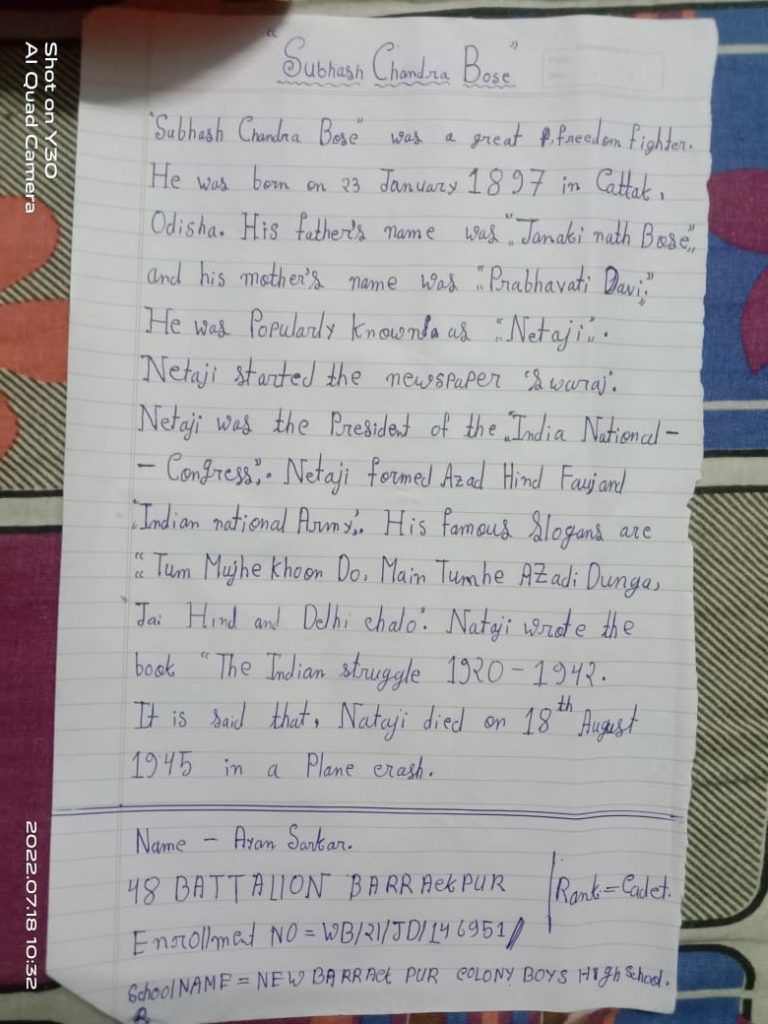 "Subhash Chandra Bose"
"Subhash Chandra Bose" was a great freedom fighter.
He was born on 23 January 1897 in Cattak,
Odisha. His father's name was "Janaki nath Bose"
and his mother's name was "Prabhavati Davi."
He was Popularly known as "Netaji".
Netaji started the newspaper 'Swaraj'.
Netaji was the President of the "India National-
- Congress". Netaji formed Azad Hind Fauj and
"Indian national Army". His famous Slogans are
"Tum Mujhe Khoon Do, Main Tumhe AZadi Dunga,
Jai Hind and Delhi chalo". Nataji wrote the
book "The Indian struggle 1920-1942.
It is said that, Nataji died on 18th August
1945 in a Plane crash.
Name - Ayan Sarkar.
48 BATTALION BARRACKPUR
Rank = Cadet.
Enrollment NO = WB/21/JD/146951//
School NAME = NEW BARRACK PUR COLONY BOYS High School.
Shot on Y30
AI Quad Camera
2022.07.18 10:32